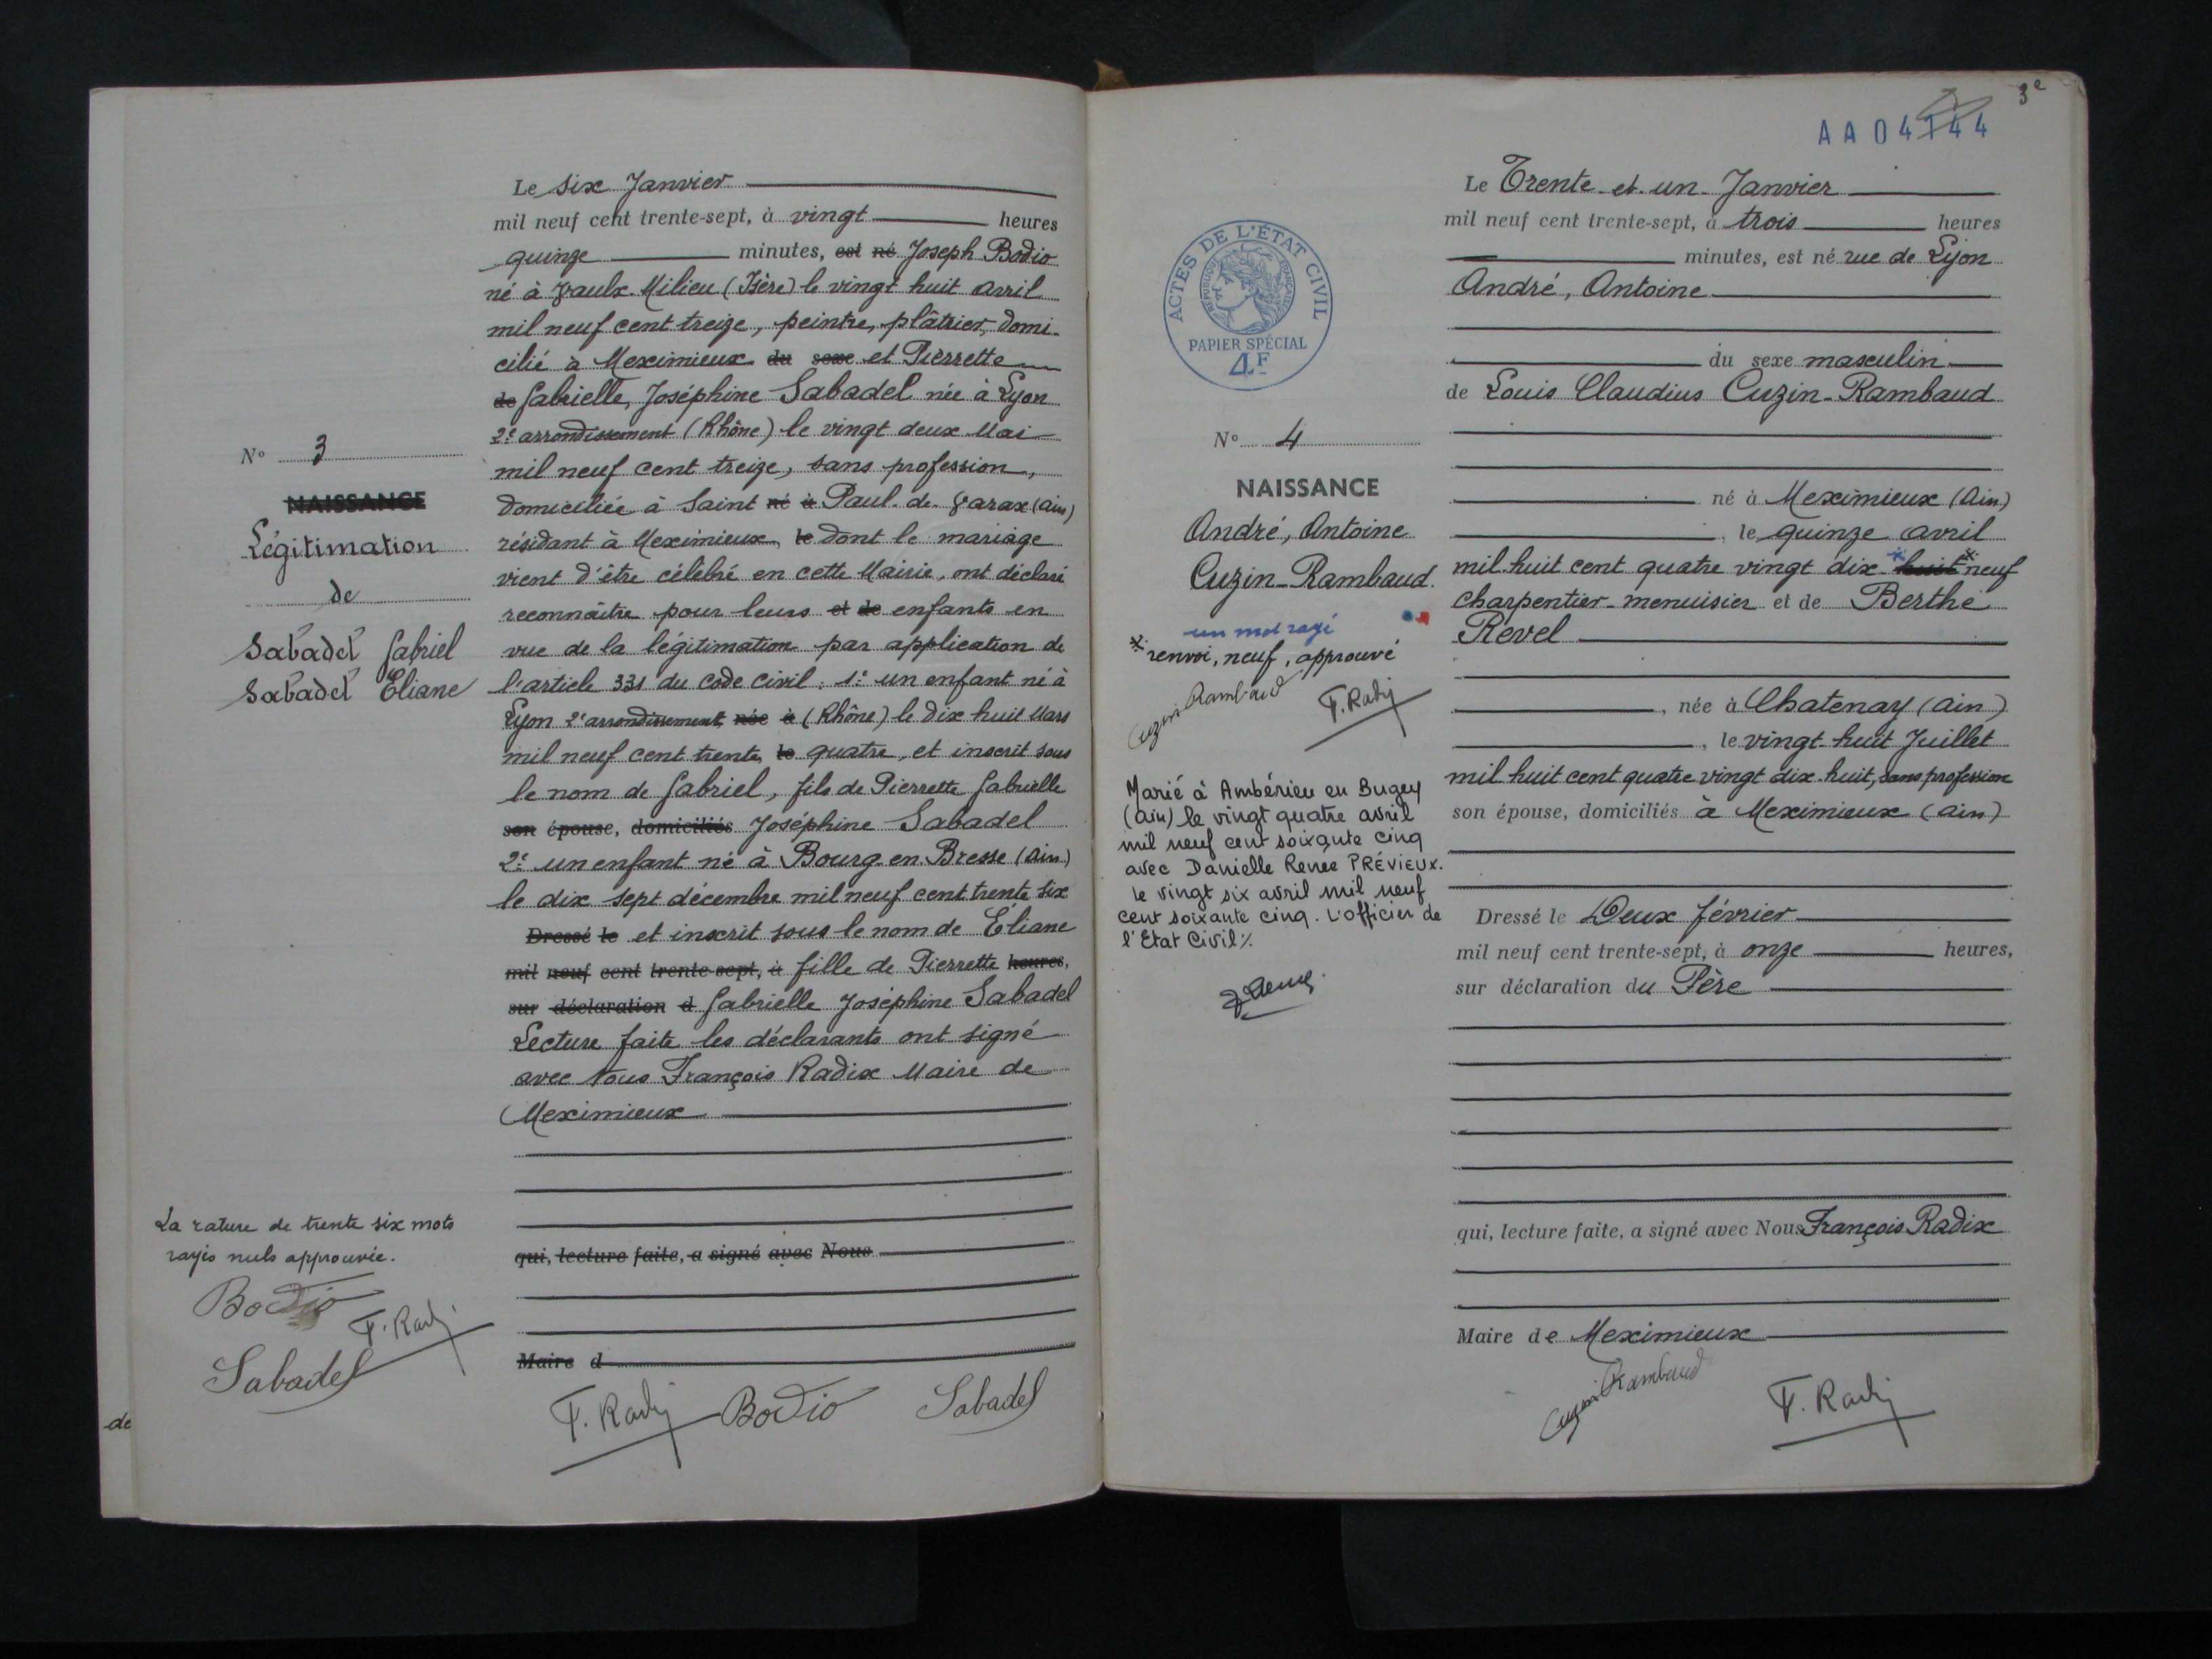 N° 3
NAISSANCE
Légitimation
de
Sabadel Gabriel
Sabadel Éliane
La rature de trente six mots
rayés nuls approuvée.
Bodio
F. Radix
Sabadel
de
Le six Janvier
mil neuf cent trente-sept, à vingt heures
quinze minutes, est né Joseph Bodio
né à Vaulx Milieu (Isère) le vingt huit avril
mil neuf cent treize, peintre, plâtrier, domi-
cilié à Meximieux du sexe et Pierrette
de Gabrielle, Joséphine Sabadel née à Lyon
2e arrondissement (Rhône) le vingt deux Mai
mil neuf cent treize, sans profession,
domiciliée à Saint né à Paul-de-Varax (ain)
résidant à Meximieux, le dont le mariage
vient d'être célébré en cette Mairie, ont déclaré
reconnaître pour leurs et de enfants en
vue de la légitimation par application de
l'article 331 du code civil: 1° un enfant né à
Lyon 2e arrondissement, née à (Rhône) le dix huit Mars
mil neuf cent trente, le quatre, et inscrit sous
le nom de Gabriel, fils de Pierrette Gabrielle
son épouse, domiciliés Joséphine Sabadel
2° un enfant né à Bourg-en-Bresse (Ain)
le dix sept décembre mil neuf cent trente six
Dressé le et inscrit sous le nom de Éliane
mil neuf cent trente-sept, à fille de Pierrette heures,
sur déclaration d Gabrielle Joséphine Sabadel
Lecture faite les déclarants ont signé
avec Nous François Radix Maire de
Meximieux
qui, lecture faite, a signé avec Nous
Maire d
F. Radix Bodio Sabadel
ACTES DE L'ÉTAT CIVIL
RÉPUBLIQUE FRANÇAISE
PAPIER SPÉCIAL
4F
N° 4
NAISSANCE
André, Antoine
Cuzin-Rambaud
un mot rayé
* renvoi, neuf, approuvé
Cuzin Rambaud
F. Radix
Marié à Ambérieu en Bugey
(Ain) le vingt quatre avril
mil neuf cent soixante cinq
avec Danielle Renée PRÉVIEUX.
Le vingt six avril mil neuf
cent soixante cinq. L'officier de
l'État Civil ⁒
3e
AA04144
Le Trente et un Janvier
mil neuf cent trente-sept, à trois heures
minutes, est né rue de Lyon
André, Antoine
du sexe masculin
de Louis Claudius Cuzin-Rambaud
né à Meximieux (Ain)
, le quinze avril
mil huit cent quatre vingt dix * huit * neuf
charpentier-menuisier et de Berthe
Revel
, née à Chatenay (ain)
, le vingt-huit Juillet
mil huit cent quatre vingt dix-huit, sans profession
son épouse, domiciliés à Meximieux (ain)
Dressé le Deux février
mil neuf cent trente-sept, à onze heures,
sur déclaration du Père
qui, lecture faite, a signé avec Nous François Radix
Maire de Meximieux
Cuzin Rambaud
F. Radix